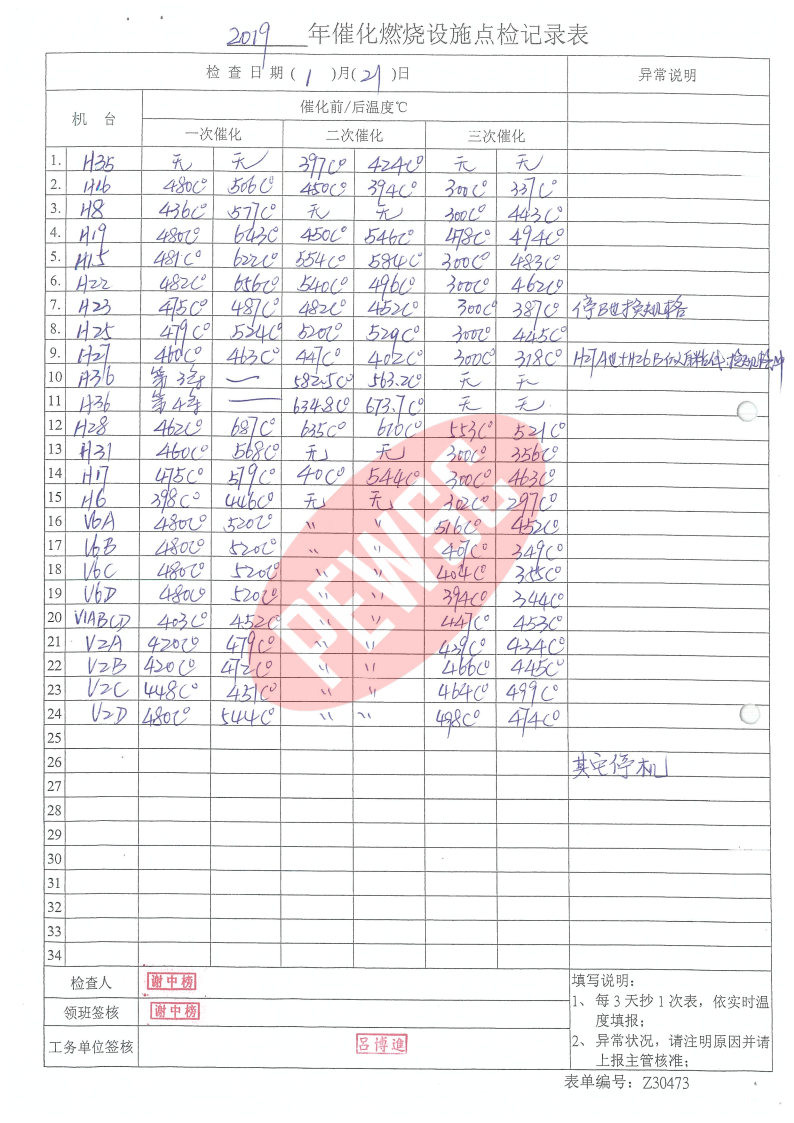 2019 年催化燃烧设施点检记录表
检查日期(1)月(21)日 异常说明
机台 催化前/后温度℃
一次催化 二次催化 三次催化
1. H35 无 无 397C° 424C° 无 无
2. H16 480C° 506C° 450C° 394C° 300C° 337C°
3. H8 436C° 577C° 无 无 300C° 443C°
4. H19 480C° 643C° 450C° 546C° 478C° 494C°
5. H15 481C° 622C° 554C° 584C° 300C° 483C°
6. H22 482C° 656C° 540C° 496C° 300C° 462C°
7. H23 475C° 487C° 482C° 452C° 300C° 387C° 停B也换规格
8. H25 479C° 524C° 520C° 529C° 300C° 445C°
9. H27 460C° 463C° 447C° 402C° 300C° 318C° H27A也+H26B
10 H36 第3台 — 582.5C° 563.2C° 无 无
11 H36 第4台 — 634.8C° 673.7C° 无 无
12 H28 462C° 687C° 635C° 610C° 553C° 521C°
13 H31 460C° 568C° 无 无 300C° 356C°
14 H17 475C° 579C° 40C° 544C° 300C° 463C°
15 H6 398C° 446C° 无 无 302C° 297C°
16 V6A 480C° 520C° " " 516C° 452C°
17 V6B 480C° 520C° " " 407C° 349C°
18 V6C 480C° 520C° " " 404C° 355C°
19 V6D 480C° 520C° " " 394C° 344C°
20 V1ABCD 403C° 452C° " " 447C° 453C°
21 V2A 420C° 479C° " " 439C° 434C°
22 V2B 420C° 472C° " " 466C° 445C°
23 V2C 448C° 451C° " " 464C° 499C°
24 V2D 480C° 544C° " " 498C° 474C°
25
26 其它停机
27
28
29
30
31
32
33
34
PEWSC
检查人 谢中榜
领班签核 谢中榜
工务单位签核 吕博进
填写说明:
1、每3天抄1次表，依实时温
度填报；
2、异常状况，请注明原因并请
上报主管核准；
表单编号：Z30473